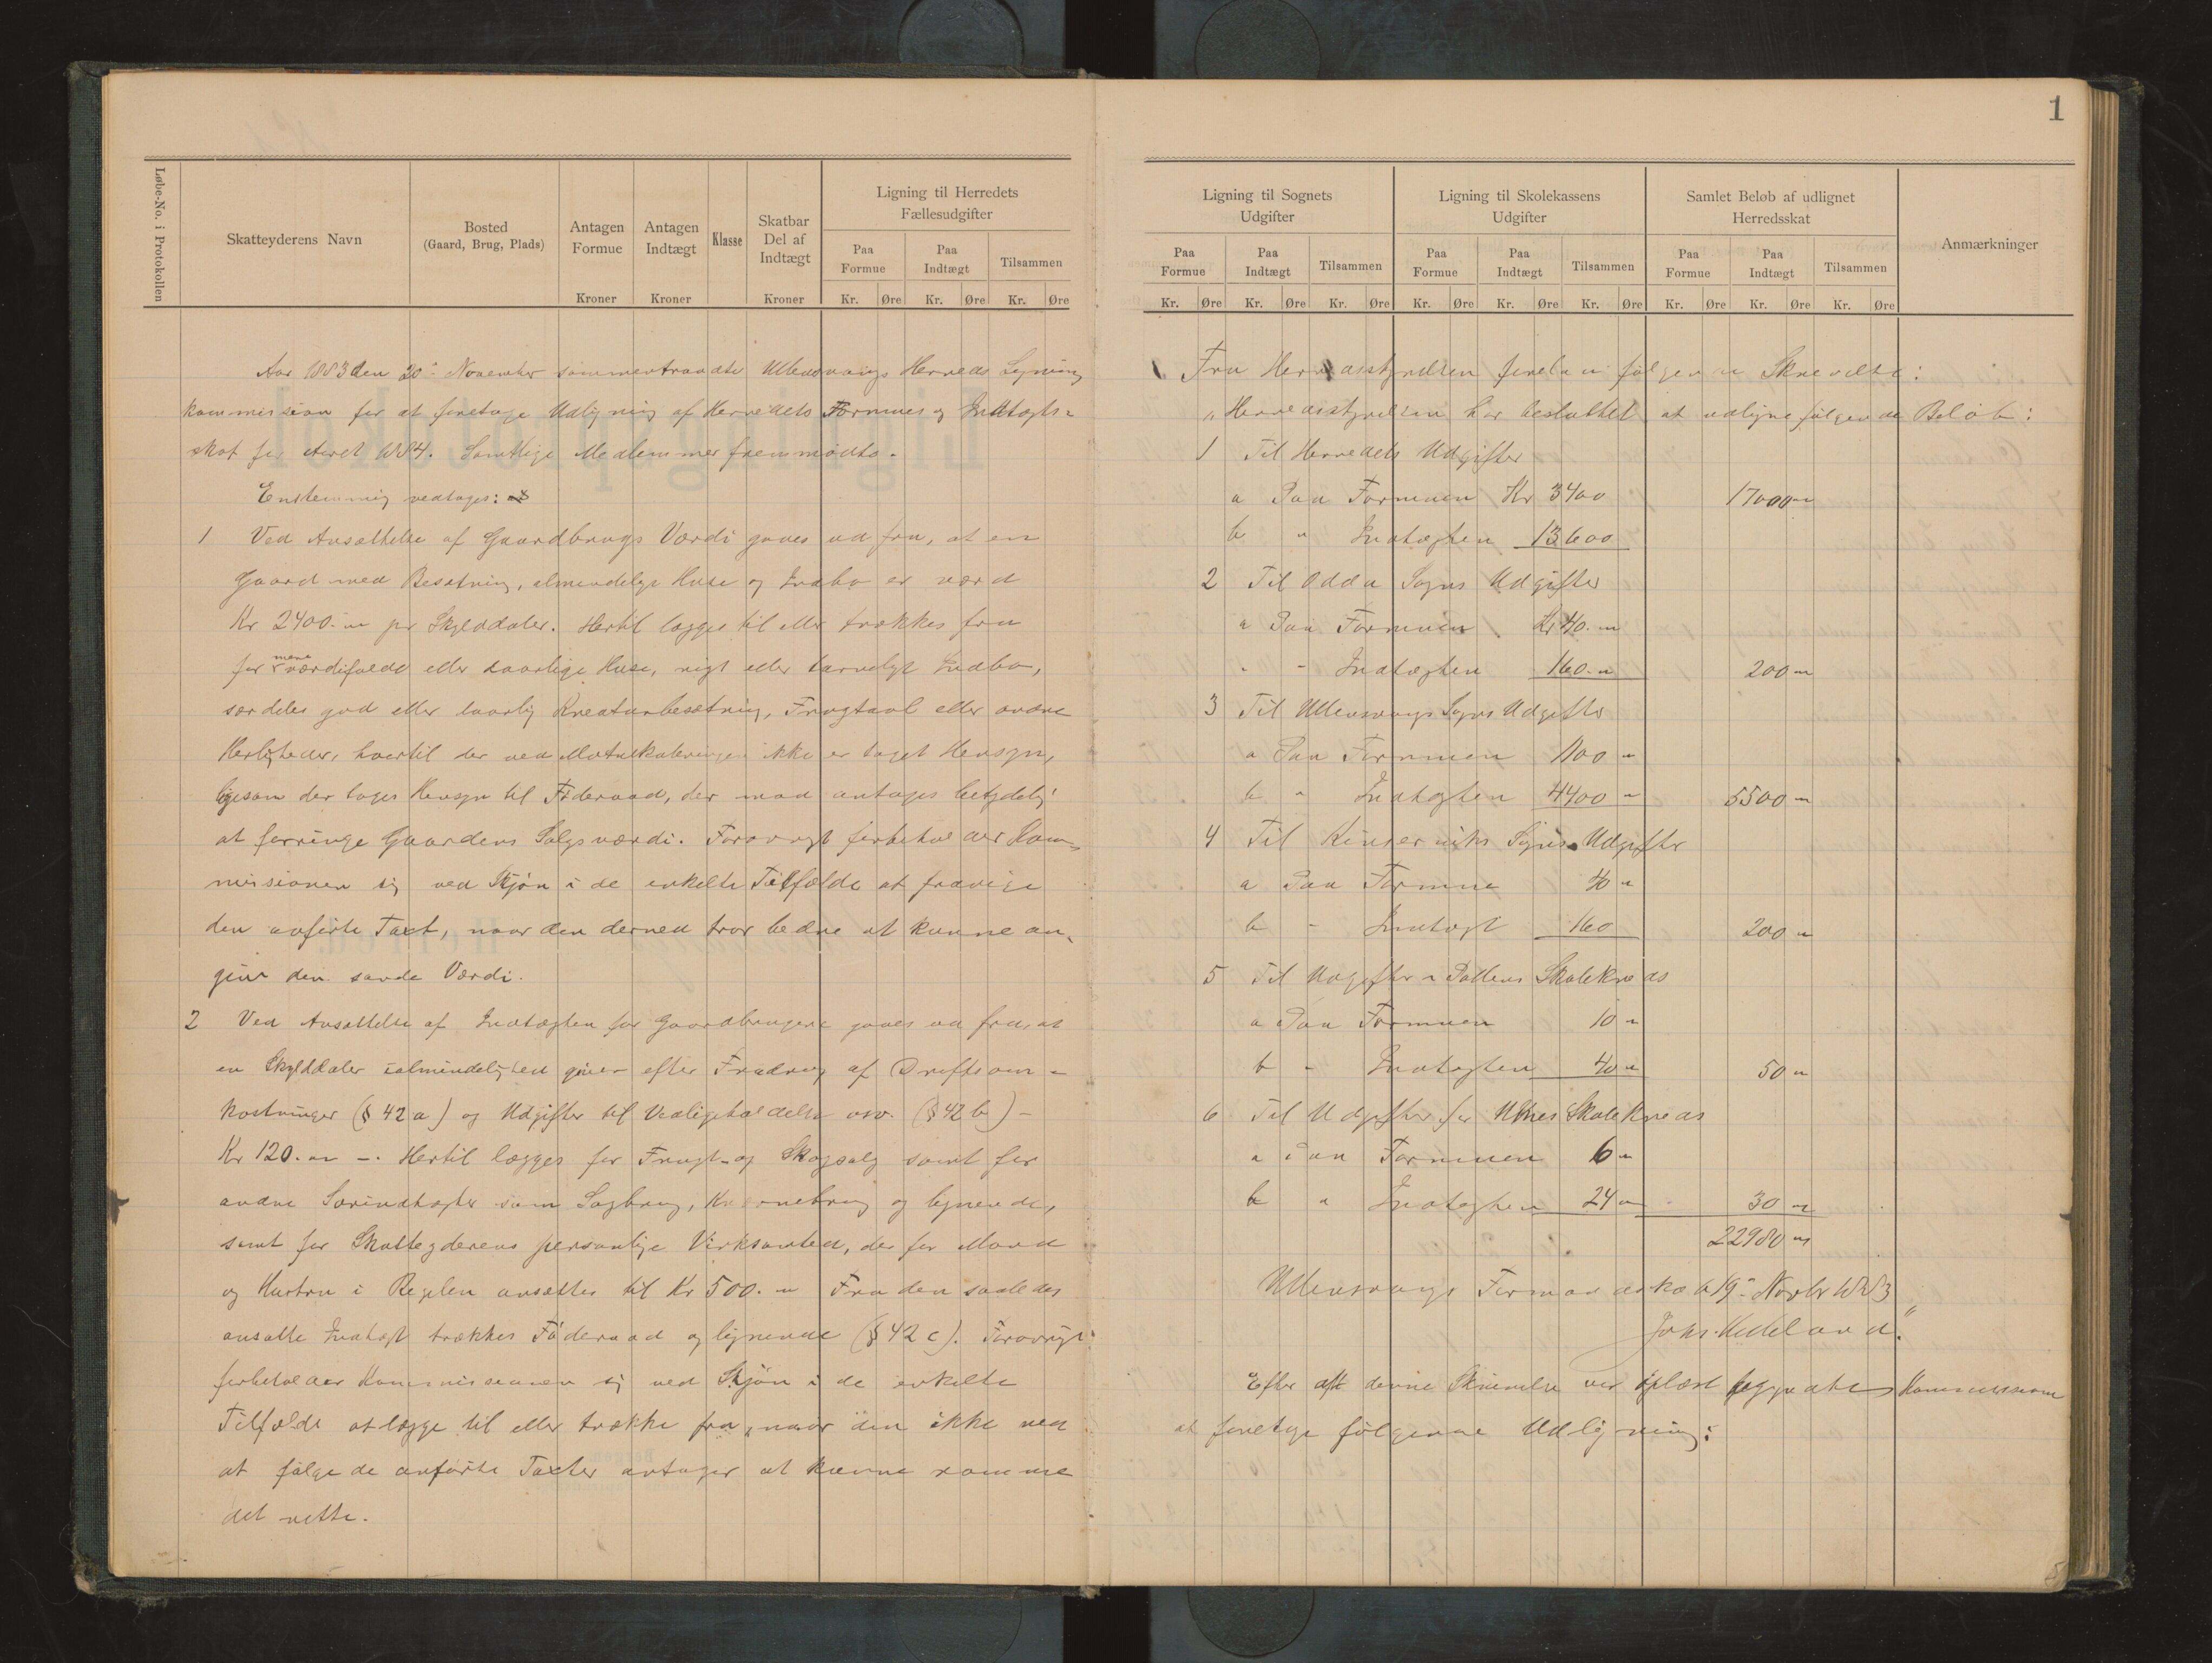 Løbe-No. i Protokollen
Skatteyderens Navn
Bosted
(Gaard, Brug, Plads)
Antagen
Formue
Kroner
Antagen
Indtægt
Kroner
Klasse
Skatbar
Del af
Indtægt
Kroner
Ligning til Herredets
Fællesudgifter
Paa
Formue
Paa
Indtægt
Tilsammen
Kr. Øre Kr. Øre Kr. Øre
Aar 1883 den 20de November sammentraadte Ullensvangs Herreds Ligning
kommission for at foretage Udligning af Herredets Formues og Indtægts-
skat for Aaret 1884. Samtlige Medlemmer fremmødte.
Enstemmig vedtoges:
1 Ved Ansættelse af Gaardbrugs Værdi gaaes ud fra, at en
Gaard med Besætning, almindelige Huse og Indbo er værd
Kr 2400.- pr Skylddaler. Hertil lægges til eller trækkes fra
for mere værdifulde eller daarlige Huse, rigt eller tarveligt Indbo,
særdeles god eller daarlig Kreaturbesætning, Frugtavl eller andre
Herligheder, hvortil der ved Matrikuleringen ikke er taget Hensyn,
ligesom der tages Hensyn til Føderaad, der maa antages betydelig
at forringe Gaardens Salgsværdi. Forøvrigt forbeholder Kom-
missionen sig ved Skjøn i de enkelte Tilfælde at fravige
den anførte Taxt, naar den derved tror bedre at kunne an-
give den sande Værdi.
2 Ved Ansættelse af Indtægten for Gaardbrugere gaaes ud fra, at
en Skylddaler ialmindelighed giver efter Fradrag af Driftsom-
kostninger (§ 42 a) og Udgifter til Vedligeholdelse osv. (§ 42 b) -
Kr 120.- -. Hertil lægges for Frugt- og Skogsalg samt for
andre Særindtægter som Sagbrug, Kværnebrug og lignende,
samt for Skatteyderens personlige Virksomhed, der for Mand
og Hustru i Regelen ansættes til Kr 500.- Fra den saaledes
ansatte Indtægt trækkes Føderaad og lignende (§ 42 c). Forøvrigt
forbeholder Kommissionen sig ved Skjøn i de enkelte
Tilfælde at lægge til eller trække fra, naar den ikke ved
at følge de anførte Taxter antager at kunne ramme
det rette.
1
Ligning til Sognets
Udgifter
Ligning til Skolekassens
Udgifter
Samlet Beløb af udlignet
Herredsskat
Anmærkninger
Paa
Formue
Paa
Indtægt
Tilsammen
Paa
Formue
Paa
Indtægt
Tilsammen
Paa
Formue
Paa
Indtægt
Tilsammen
Kr. Øre Kr. Øre Kr. Øre Kr. Øre Kr. Øre Kr. Øre Kr. Øre Kr. Øre Kr. Øre
Fra Herredsstyrelsen forelaa følgende Skrivelse:
"Herredsstyrelsen har besluttet at udligne følgende Beløb:
1 Til Herredets Udgifter
a Paa Formuen Kr 3400 17000 -
b " Indtægten 13600
2 Til Odda Sogns Udgifter
a Paa Formuen Kr 40.-
" - Indtægten 160.- 200 -
3 Til Ullensvangs Sogns Udgifter
a Paa Formuen 1100 -
b " Indtægten 4400 - 5500 -
4 Til Kinserviks Sogns Udgifter
a Paa Formue 40 -
b - Indtægt 160 200 -
5 Til Udgifter Skolekreds
a Paa Formuen 10 -
b - Indtægten 40 - 50 -
6 Til Udgifter for Utnes Skolekreds
a Paa Formuen 6 -
b " Indtægten 24 - 30 -
22980 -
Ullensvangs Formandskab 19de Novbr 1883
Johs. "
Efter at denne Skrivelse var oplæst Kommissionen
at foretage følgende Udligning: